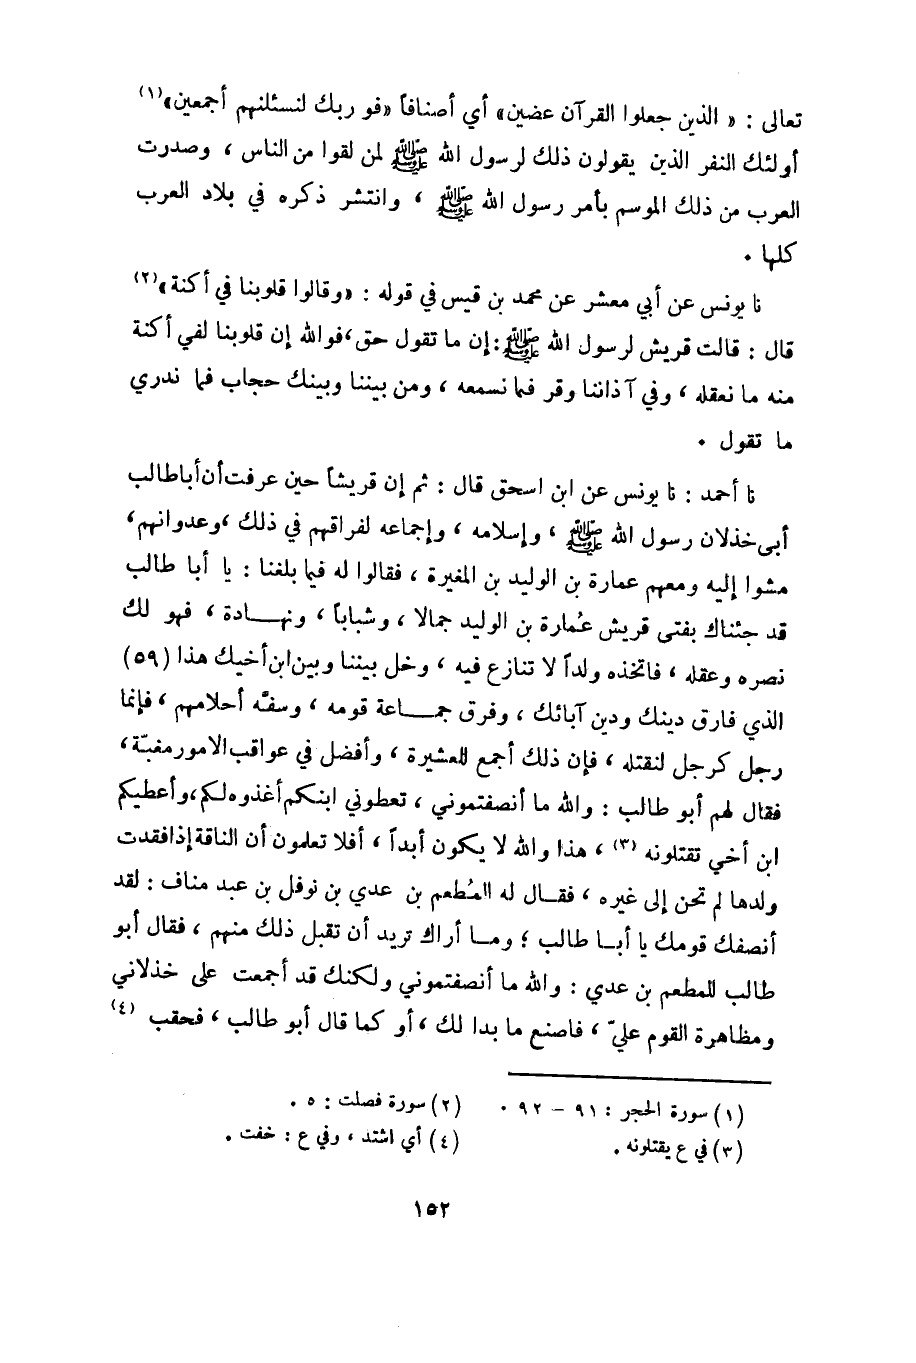 تعالى : « الذين جعلوا القرآن عضين» أي أصنافاً «فو ربك لنسئلنهم أجمعين»(١)
أولئك النفر الذين يقولون ذلك لرسول الله ﷺ لمن لقوا من الناس ، وصدرت
العرب من ذلك الموسم بأمر رسول الله ﷺ ، وانتشر ذكره في بلاد العرب
كلها .
نا يونس عن أبي معشر عن محمد بن قيس في قوله : «وقالوا قلوبنا في أكنة»(٢)
قال : قالت قريش لرسول الله ﷺ : إن ما تقول حق ، فوالله إن قلوبنا لفي أكنة
منه ما نعقله ، وفي آذاننا وقر فما نسمعه ، ومن بيننا وبينك حجاب فما ندري
ما تقول .
نا أحمد : نا يونس عن ابن اسحق قال : ثم إن قريشاً حين عرفت أن أبا طالب
أبى خذلان رسول الله ﷺ ، وإسلامه ، وإجماعه لفراقهم في ذلك ، وعدوانهم ،
مشوا إليه ومعهم عمارة بن الوليد بن المغيرة ، فقالوا له فيما بلغنا : يا أبا طالب
قد جئناك بفتى قريش عُمارة بن الوليد جمالا ، وشباباً ، ونهـادة ، فهو لك
نصره وعقله ، فاتخذه ولداً لا تنازع فيه ، وخل بيننا وبين ابن أخيك هذا (٥٩)
الذي فارق دينك ودين آبائك ، وفرق جمـاعة قومه ، وسفّه أحلامهم ، فإنما
رجل كرجل لنقتله ، فإن ذلك أجمع للعشيرة ، وأفضل في عواقب الامور مغبّة ،
فقال لهم أبو طالب : والله ما أنصفتموني ، تعطوني ابنكم أغذوه لكم ، وأعطيكم
ابن أخي تقتلونه (٣) ، هذا والله لا يكون أبداً ، أفلا تعلمون أن الناقة إذا فقدت
ولدها لم تحن إلى غيره ، فقـال له المُطعم بن عدي بن نوفل بن عبد مناف : لقد
أنصفك قومك يا أبـا طالب ؛ ومـا أراك تريد أن تقبل ذلك منهم ، فقال أبو
طالب للمطعم بن عدي : والله ما أنصفتموني ولكنك قد أجمعت على خذلاني
ومظاهرة القوم عليّ ، فاصنع ما بدا لك ، أو كما قال أبو طالب ، فحقب (٤)
(١) سورة الحجر : ٩١ - ٩٢ . (٢) سورة فصلت : ٥ .
(٣) في ع يقتلونه . (٤) أي اشتد ، وفي ع : خفت .
١٥٢